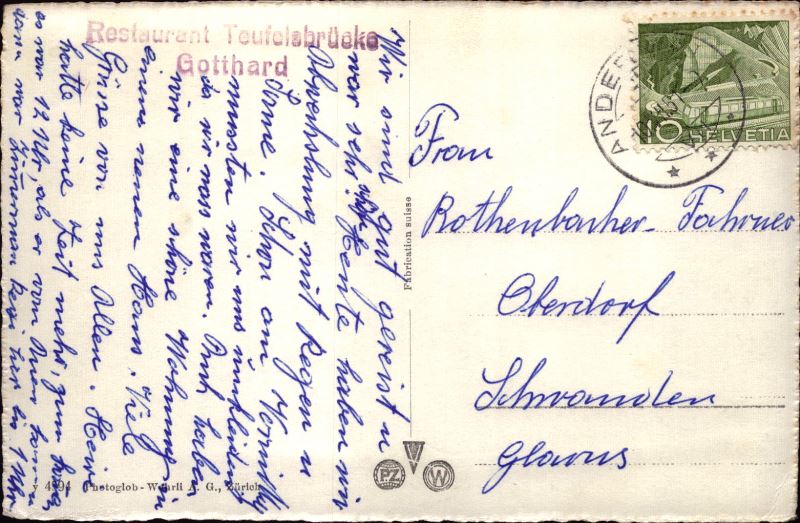 Restaurant Teufelsbrücke
Gotthard
Wir sind gut gereist u
war sehr schön. Heute haben wir
Abwechslung mit Regen u
Sonne. Schon am Vormittag
mussten wir uns umkleiden
da wir nass waren. Auch haben
wir eine schöne Wohnung in
einem neuen Haus. Viele
Grüsse von uns Allen. Heiri
hatte keine Zeit mehr, zum
es war 12 Uhr, als er vom
dann war Zimmermann hier bis 1 Uhr
Fabrication suisse
ANDER
HELVETIA
10
Frau
Rothenbacher-Fahrner
Oberdorf
Schwanden
Glarus
PZ W
4894 Photoglob-Wehrli A. G., Zürich